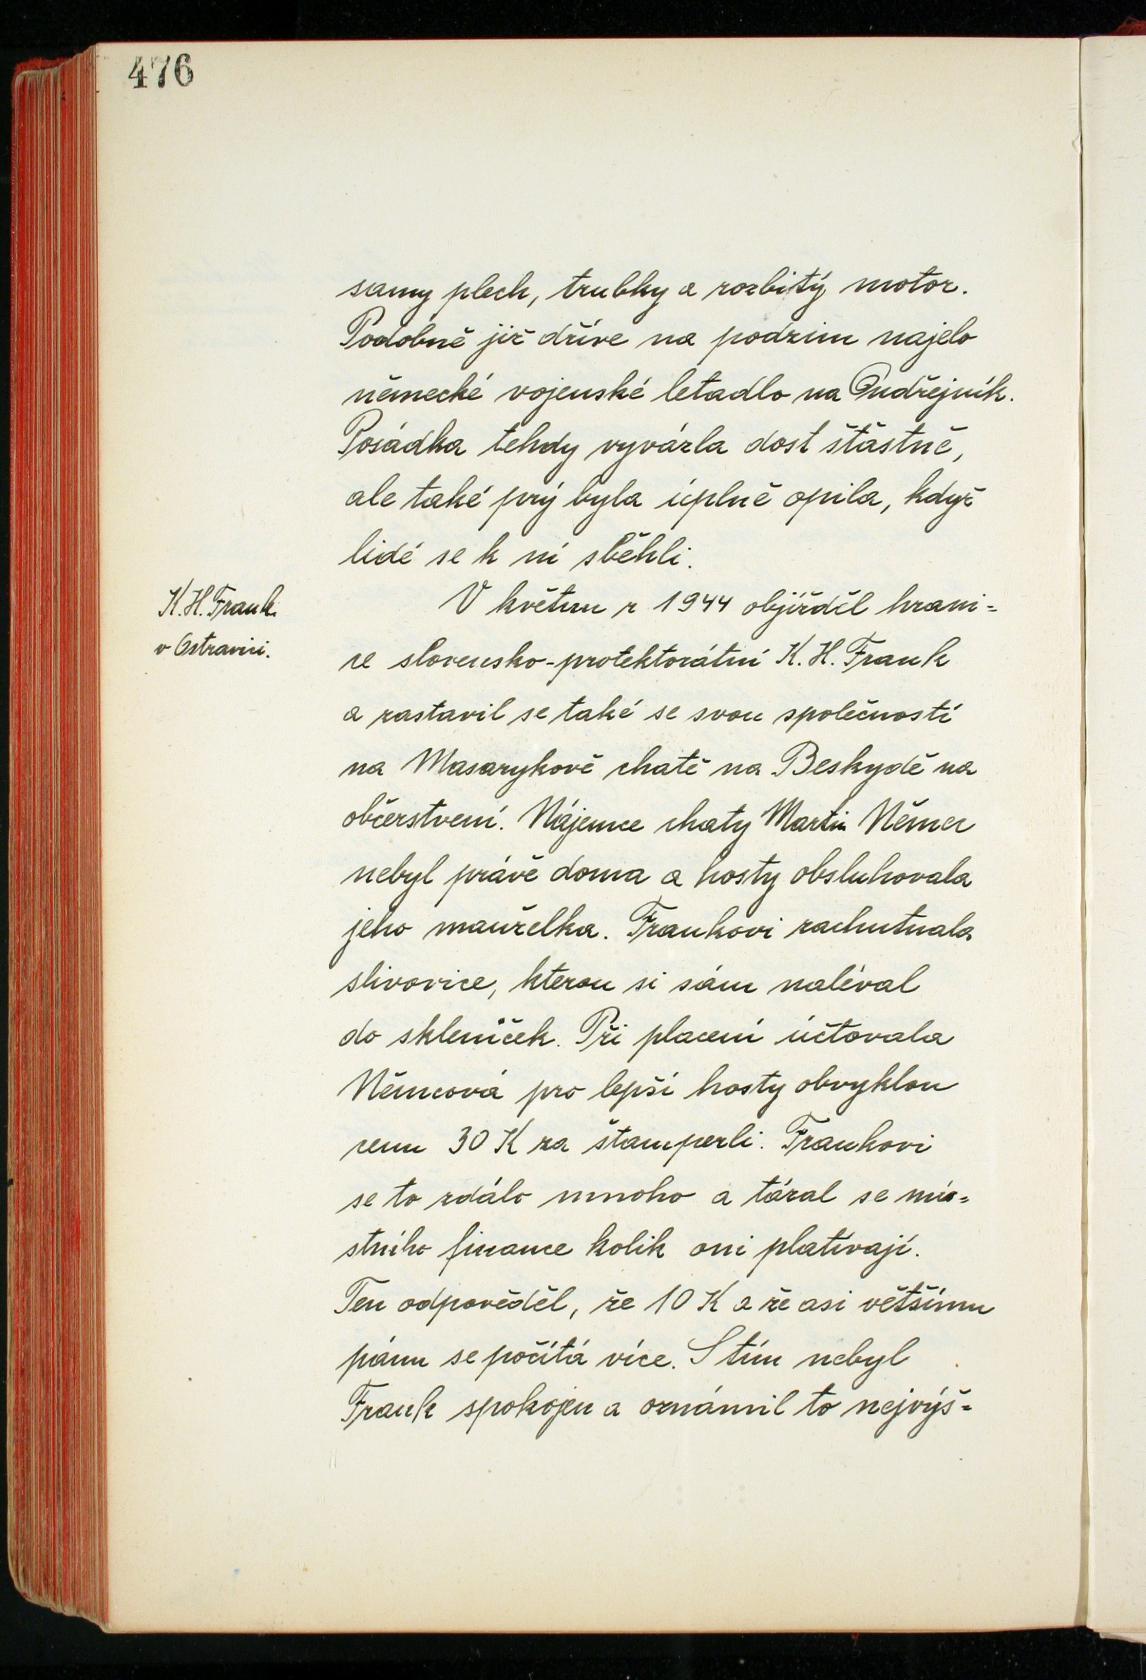 476
samy plech, trubky a rozbitý motor.
Podobně již dříve na podzim najelo
německé vojenské letadlo na Ondřejník.
Posádka tehdy vyvázla dost šťastně,
ale také prý byla úplně opila, když
lidé se k ní sběhli.
K. H. Frank
v Ostravici.
V květnu r 1944 objížděl hrani=
ce slovensko-protektorátní K. H. Frank
a zastavil se také se svou společností
na Masarykově chatě na Beskydě na
občerstvení. Nájemce chaty Martin Němec
nebyl právě doma a hosty obsluhovala
jeho manželka. Frankovi zachutnala
slivovice, kterou si sám naléval
do skleniček. Při placení účtovala
Němcová pro lepší hosty obvyklou
cenu 30 K za štamperli. Frankovi
se to zdálo mnoho a tázal se mís=
stního finance kolik oni platívají.
Ten odpověděl, že 10 K a že asi většímu
pánu se počítá více. S tím nebyl
Frank spokojen a oznámil to nejvýš=